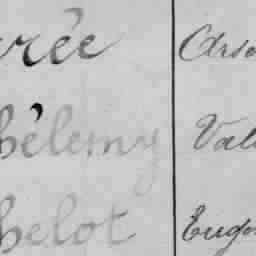 rée Arse
hélemy Vale
helot Euge